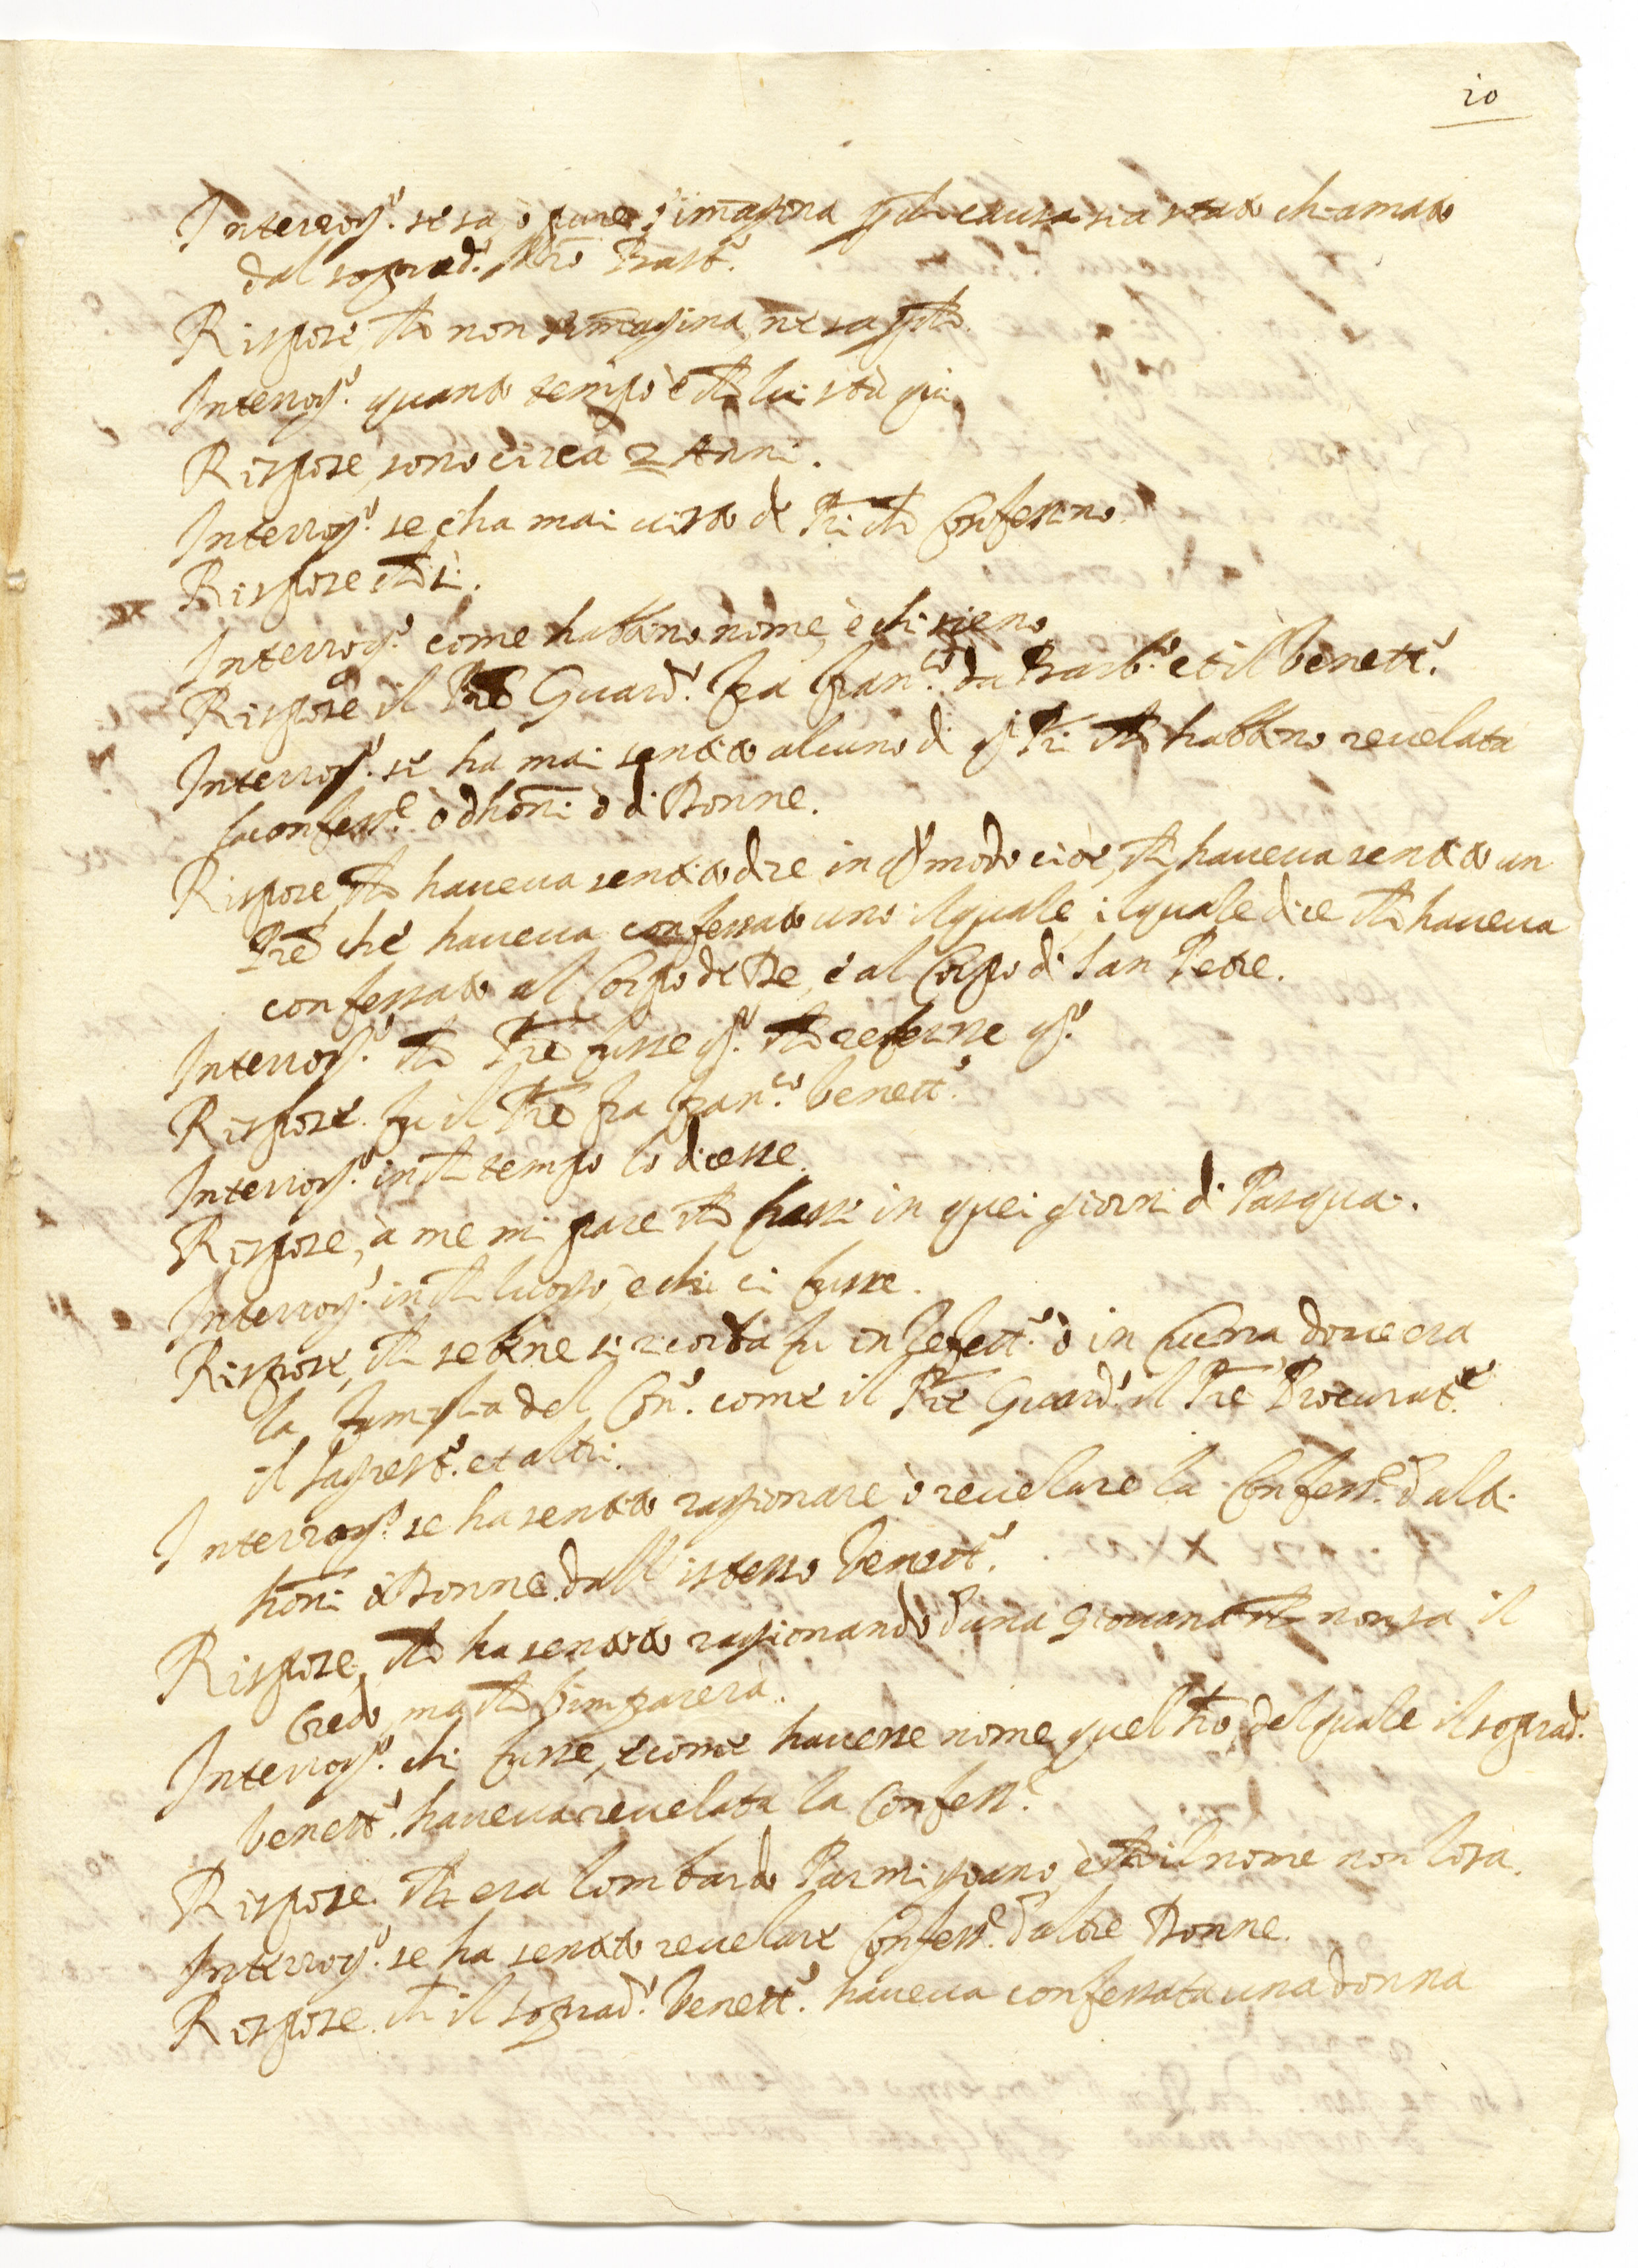 10
Interrog.º se sa, ò pure s'imagina p che causa sia stato chiamato
dal soprad.º Mrõ Prast.º
Rispose, che non s'imagina, ne sa p che.
Interrog.º quanto tempo è che lui stà qui.
Rispose, sono circa 2 Anni.
Interrog.º se c'ha mai visto de Pri che Confessino.
Rispose che si.
Interrog.º come habbino nome, è chi sieno
Rispose il Prē Guard.º fra fran.co da et il benett.º
Interrog.º se ha mai sentito alcuno di qti Pri che habbino reuelata
la confess.e ò d'homi ò di Donne.
Rispose, che haueua sentito dire in qº modo cioè, che haueua sentito un
Prē che haueua confessato uno ilquale, ilquale dice che haueua
confessato al Corpo de De, è al Corpo di San Petre.
Interrog.º che Prē fusse qº che referisse qº
Rispose. fu il Prē fra fran.co benett.º
Interrog.º in che tempo lo dicesse.
Rispose, à me mi pare che fussi in quei giorni di Pasqua.
Interrog.º in che luogo, è chi ci fusse.
Rispose, che se bene si ricorda fu in Refett.º ò in Cucina doue era
la famiglia del Con.º come il Prē Guard.º il Prē Procurat.re
il Sagrest.º et altri.
Interrog.º se ha sentito ragionare ò reuelare la Confess.e d'alt.
homi ò Donne dall'istesso benett.º
Rispose, che ha sentito ragionando d'una giouana che non sa il
Credo, ma che l'imparerà.
Interrog.º chi fusse, e come hauesse nome quel hō, del quale il soprad.º
benett.º haueua reuelata la Confess.e
Rispose. che era lombardo Parmigiano, è che il nome non lo sà.
Interrog.º se ha sentito reuelare Confess.e d'altre Donne.
Rispose. che il soprad.º benett.º haueua confessata una donna